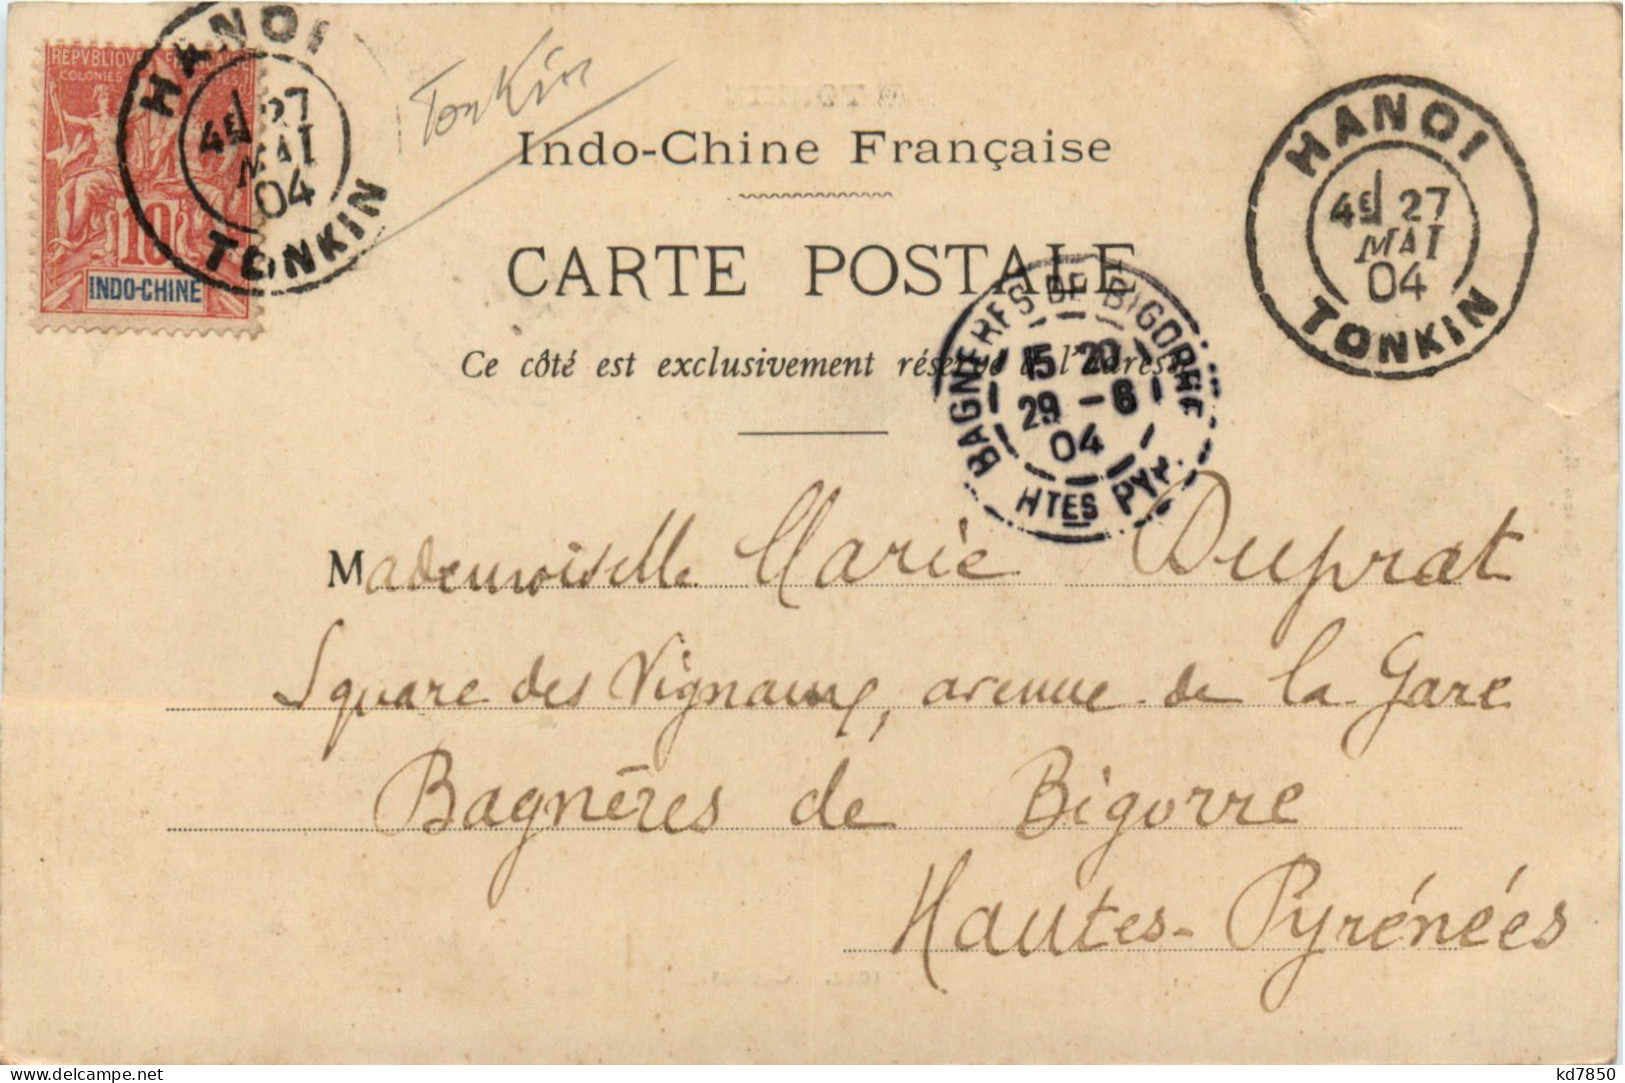 REPVBLIQUE FRANÇAISE
COLONIES POSTES
10
INDO-CHINE
HANOI
4E 27
MAI
04
TONKIN
Tonkin
Indo-Chine Française
CARTE POSTALE
Ce côté est exclusivement réservé à l'adresse
HANOI
4E 27
MAI
04
TONKIN
BAGNERES DE BIGORRE
15 20
29 - 6
04
HTES PYR.
Mademoiselle Marie Duprat
Square des Vignaux, avenue de la Gare
Bagnères de Bigorre
Hautes-Pyrénées
kd7850